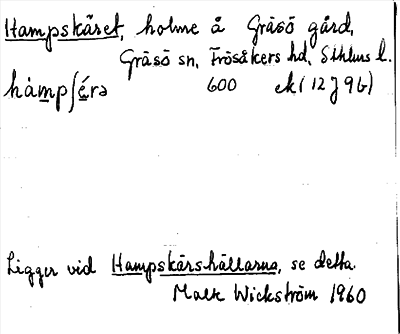 Hampskäret, holme å Gräsö gård,
Gräsö sn, Frösåkers hd, Sthlms l.
hàmpʃérə 600 ek (12 J 9 b)
Ligger vid Hampskärshällarna, se detta.
Malk Wickström 1960